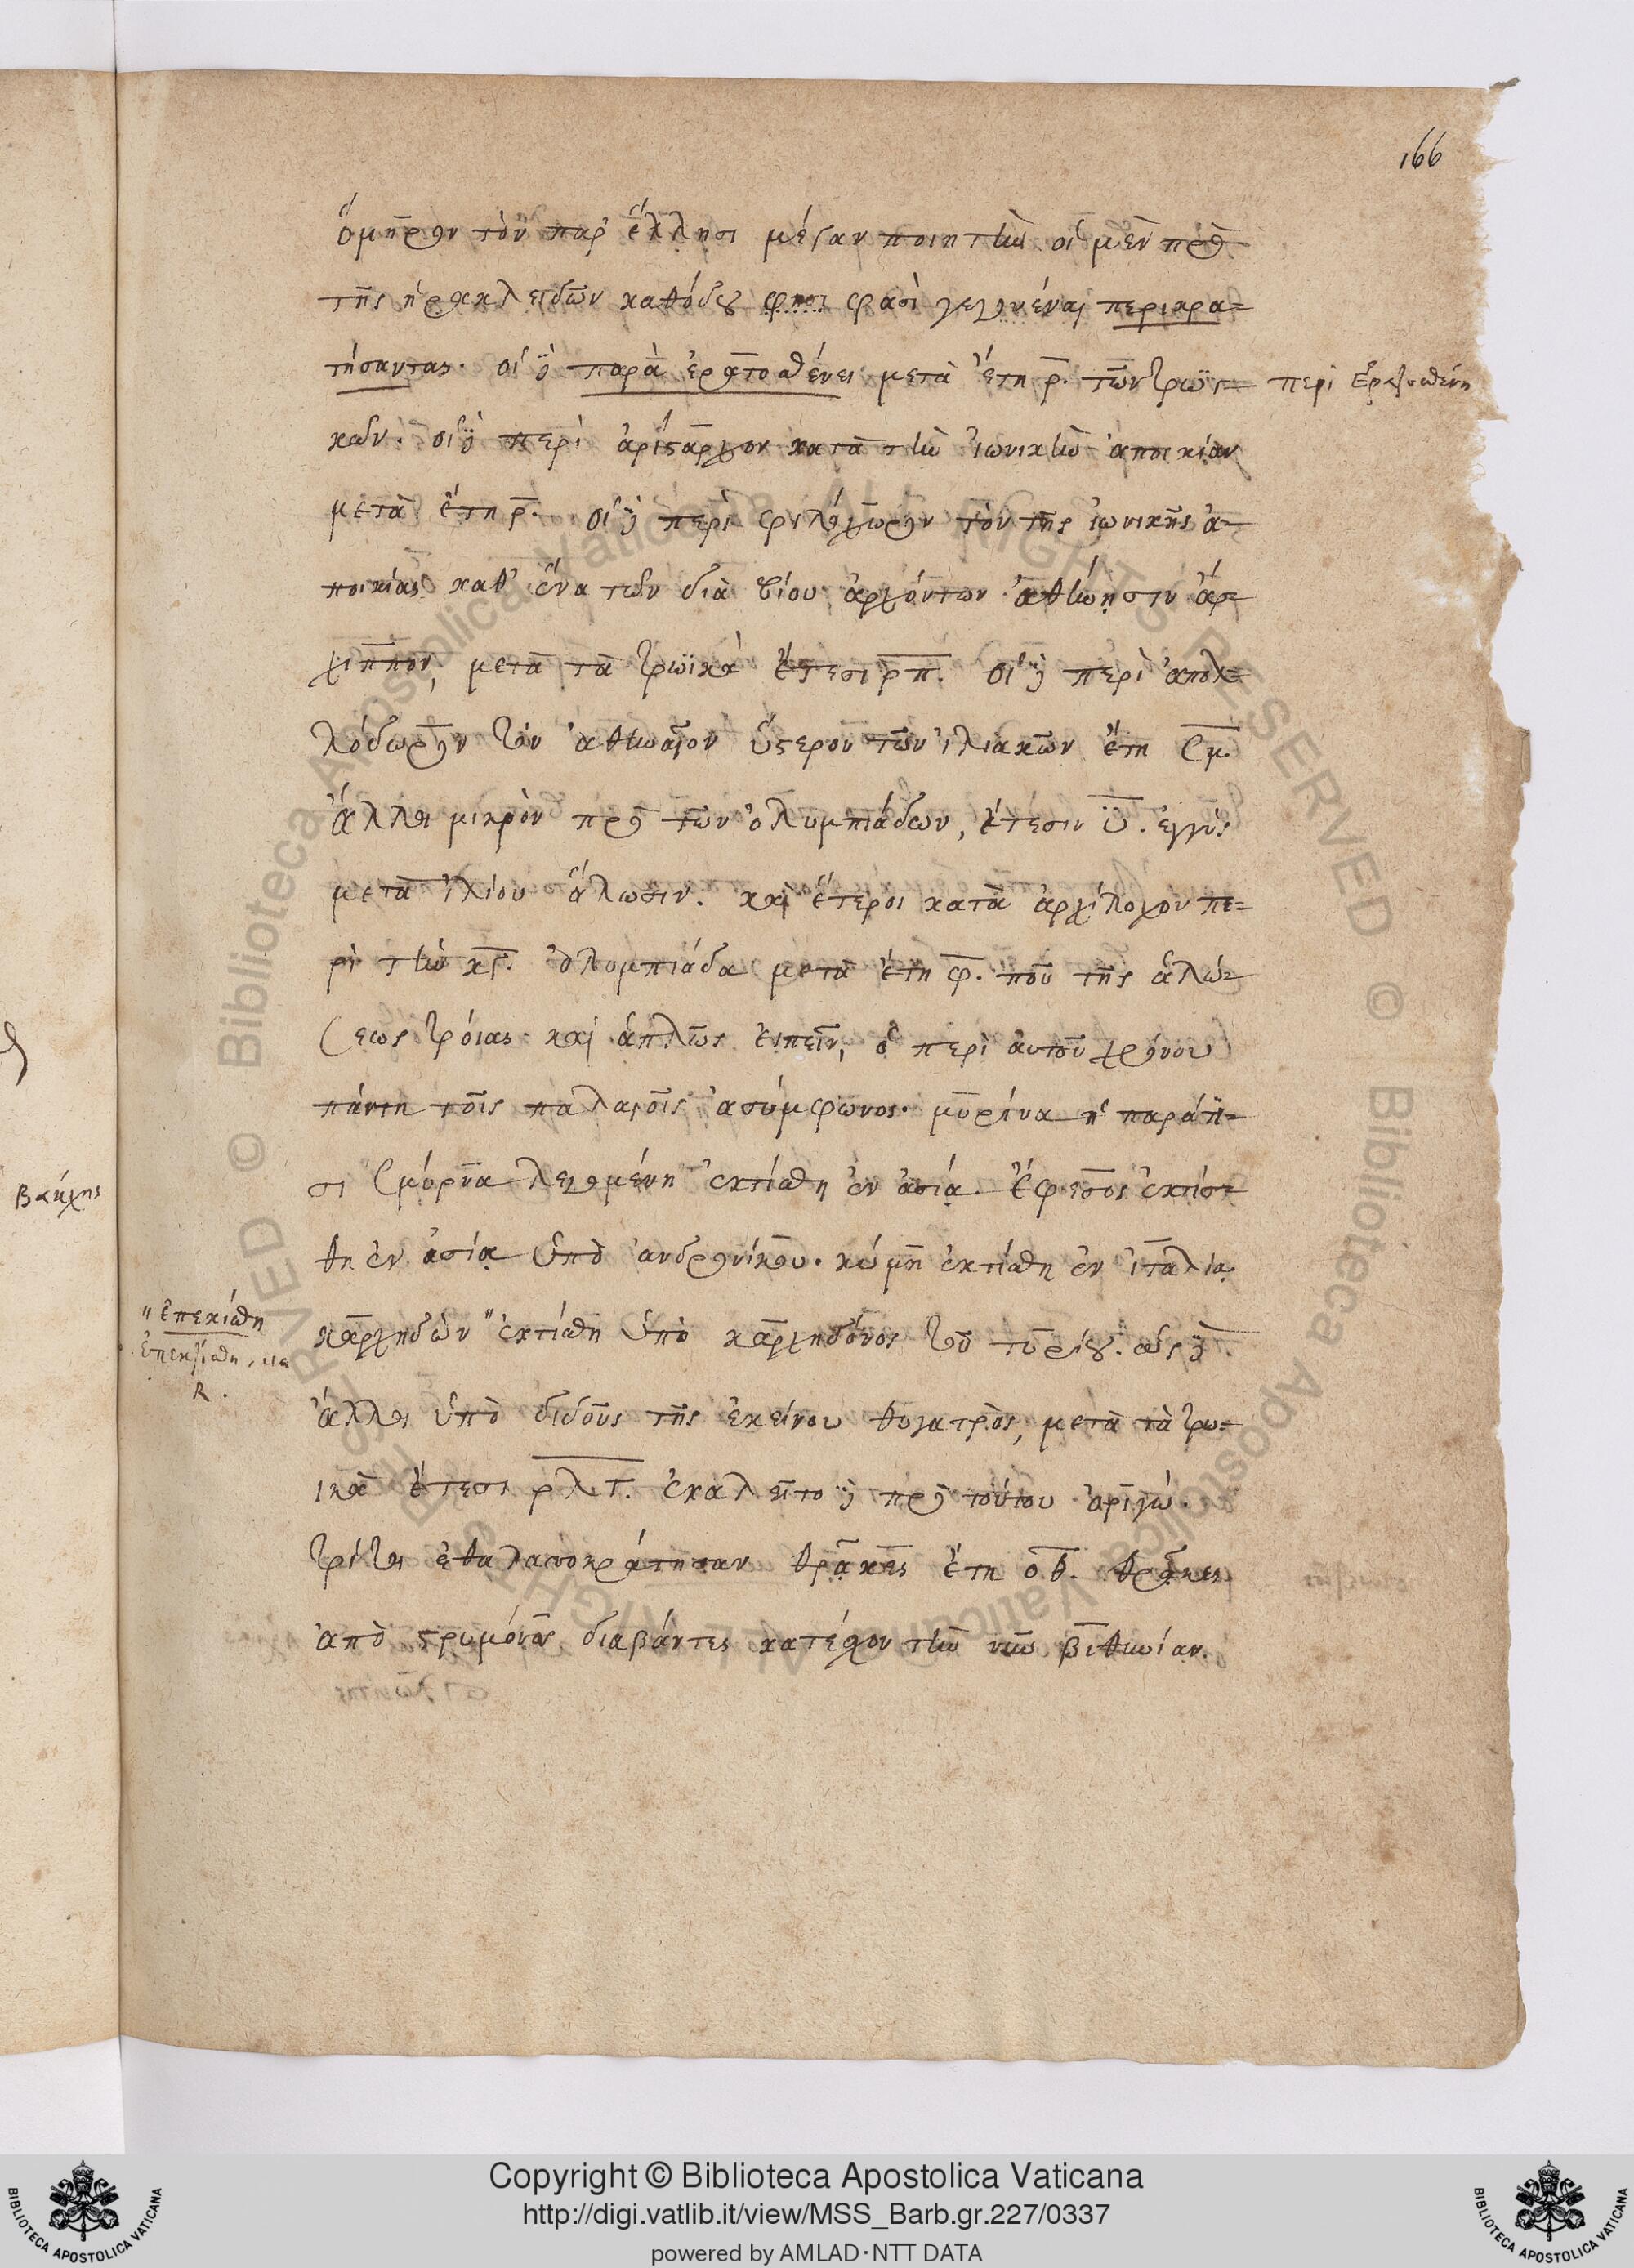 166
ὅμηρον τὸν παρ' ἕλλησι μέγαν ποιητὴν οἱ μὲν πρὸ
τῆς ἡρακλειδῶν καθόδου φησι φασὶ γεγονέναι περικρα=
τήσαντας. οἱ δὲ παρὰ ἐρατοσθένει μετὰ ἔτη ρ. τῶν τρωϊ=
περὶ Ἐρατοσθένη
κῶν. οἱ δὲ περὶ ἀρίσταρχον κατὰ τὴν ἰωνικὴν ἀποικίαν
μετὰ ἔτη ρ. οἱ δὲ περὶ φιλόχωρον τὸν τῆς ἰωνικῆς ἀ=
ποικίας καθ' ἕνα τῶν διὰ βίου ἀρχόντων ἀθήνησιν ἄρ=
χιππον, μετὰ τὰ τρωϊκὰ ἔτεσι ρπ. οἱ δὲ περὶ ἀπολ=
λόδωρον τὸν ἀθηναῖον ὕστερον τῶν ἰλιακῶν ἔτη ςμ.
ἄλλοι μικρὸν πρὸ τῶν ὀλυμπιάδων, ἔτεσιν υ. εγγὺς
μετὰ ἰλίου ἅλωσιν. καὶ ἕτεροι κατὰ ἀρχίλοχον πε=
ρὶ τὴν κγ. ὀλυμπιάδα μετὰ ἔτη φ. που τῆς ἁλώ=
σεως τρόιας. καὶ ἁπλῶς ἐιπεῖν, ὁ περὶ αυτοῦ χρόνου
πάντη τοῖς παλαιοῖς ἀσύμφωνος. μυρίνα ἡ παρά τι=
σι σμύρνα λεγομένη ἐκτίσθη ἐν ἀσίᾳ. ἔφεσος ἐκτίσ=
θη ἐν ἀσίᾳ ὑπὸ ἀνδρονίκου. κύμη ἐκτίσθη ἐν ἰταλίᾳ.
" ἐπεκίσθη
καρχηδὼν " ἐκτίσθη ὑπὸ καρχηδόνος τοῦ τυρίου. ὡς δὲ
R.
ἄλλοι ὑπὸ διδοῦς τῆς ἐκείνου θυγατρὸς, μετὰ τὰ τρω=
ικὰ ἔτεσι ρλτ. ἐκαλεῖτο δὲ πρὸ τούτου ἀριγώ.
τρίτοι ἐθαλασσοκράτησαν θρᾷκες ἔτη οθ. θρᾷκες
ἀπὸ στρυμόνος διαβάντες κατέσχον τὴν νῦν βιθυνίαν.
Βάκχης
Copyright © Biblioteca Apostolica Vaticana
http://digi.vatlib.it/view/MSS_Barb.gr.227/0337
powered by AMLAD·NTT DATA
BIBLIOTECA APOSTOLICA VATICANA
BIBLIOTECA APOSTOLICA VATICANA